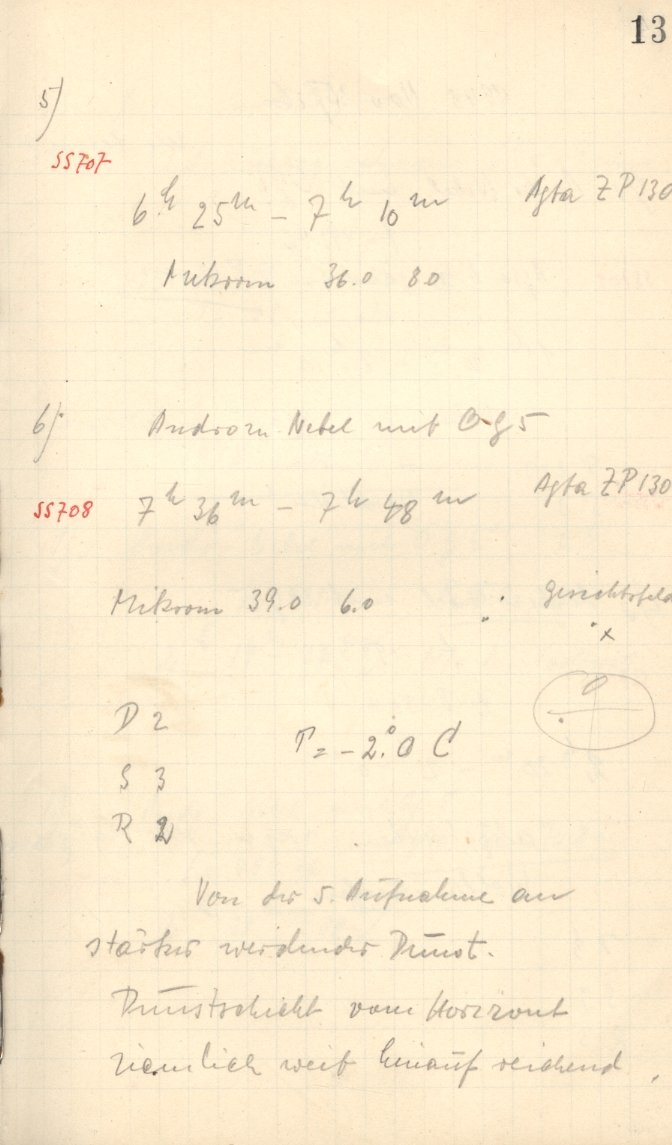 13
5)
SS707
6h 25m - 7h 10m Agfa ZP 130
Mikrom 36.0 8.0
6) Androm Nebel mit OG5
SS708 7h 36m - 7h 48m Agfa ZP 130
Mikrom 39.0 6.0 Gesichtsfeld
x
D 2
T = -2°.0 C
S 3
R 2
Von der 5. Aufnahme an
stärker werdender Dunst.
Dunstschicht vom Horizont
ziemlich weit hinauf reichend.